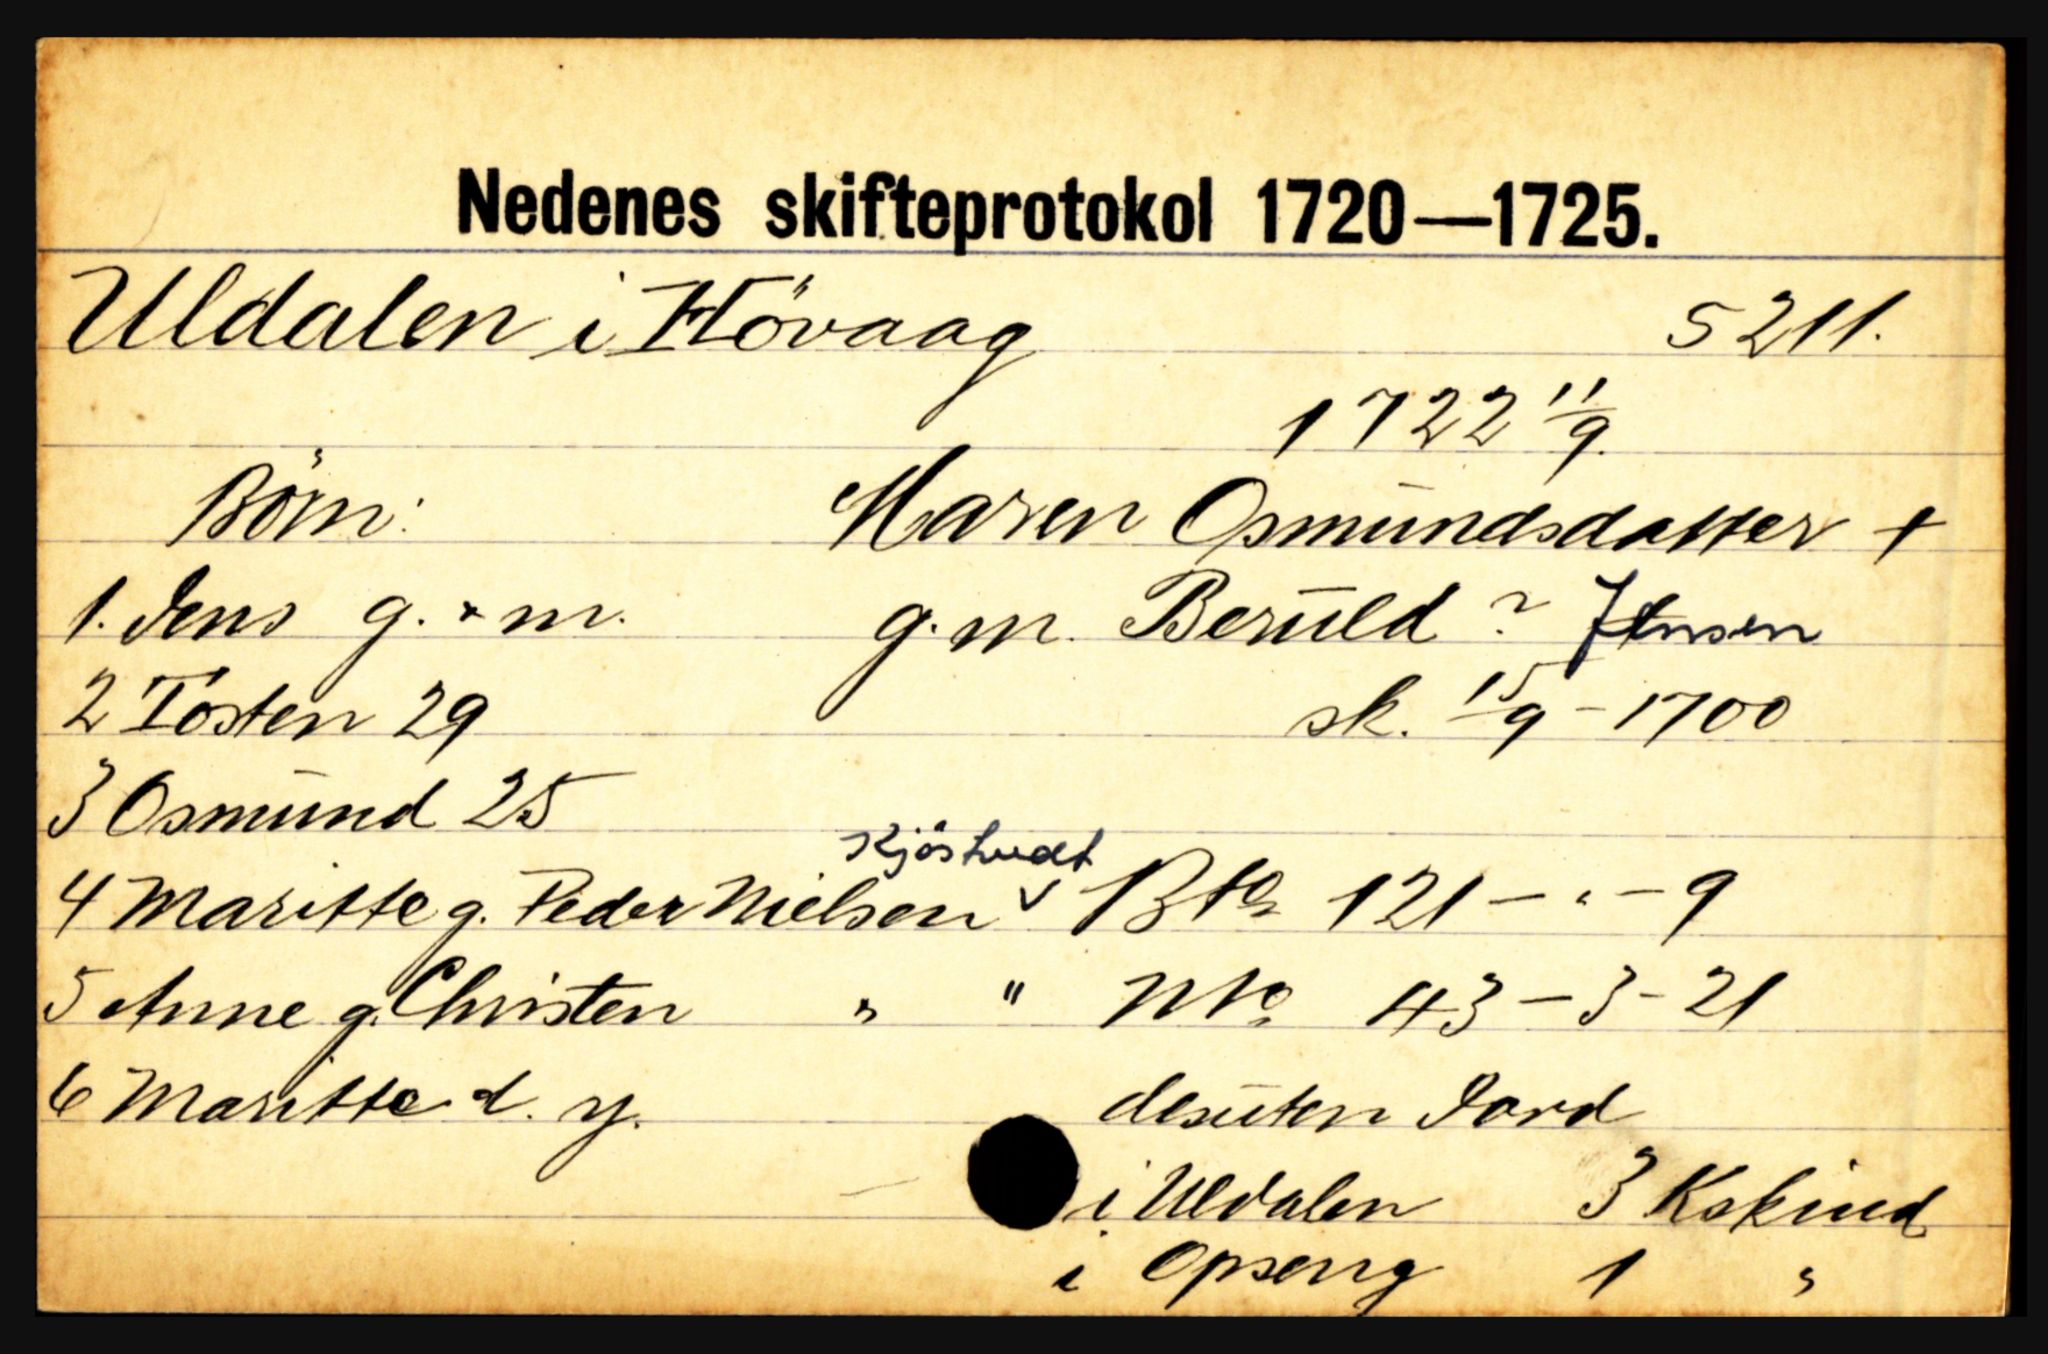 Nedenes skifteprotokol 1720—1725.
Uldalen i Hövaag 5211.
1722 11/9.
Börn: Maren Osmundsdatter +
1. Jens g. + m. g. m. Beruld ? Jensen
2 Tosten 29 sk. 15/9 - 1700
3 Osmund 25
Kjöstvedt
4 Maritte g. Peder Nielsen v Bto 121 — " — 9
5 Anne g. Christen " " Nto 43 — 3 - 21
6 Maritte d. y. desuten Jord
i Uldalen 3 Kskind
i Opseng 1 "